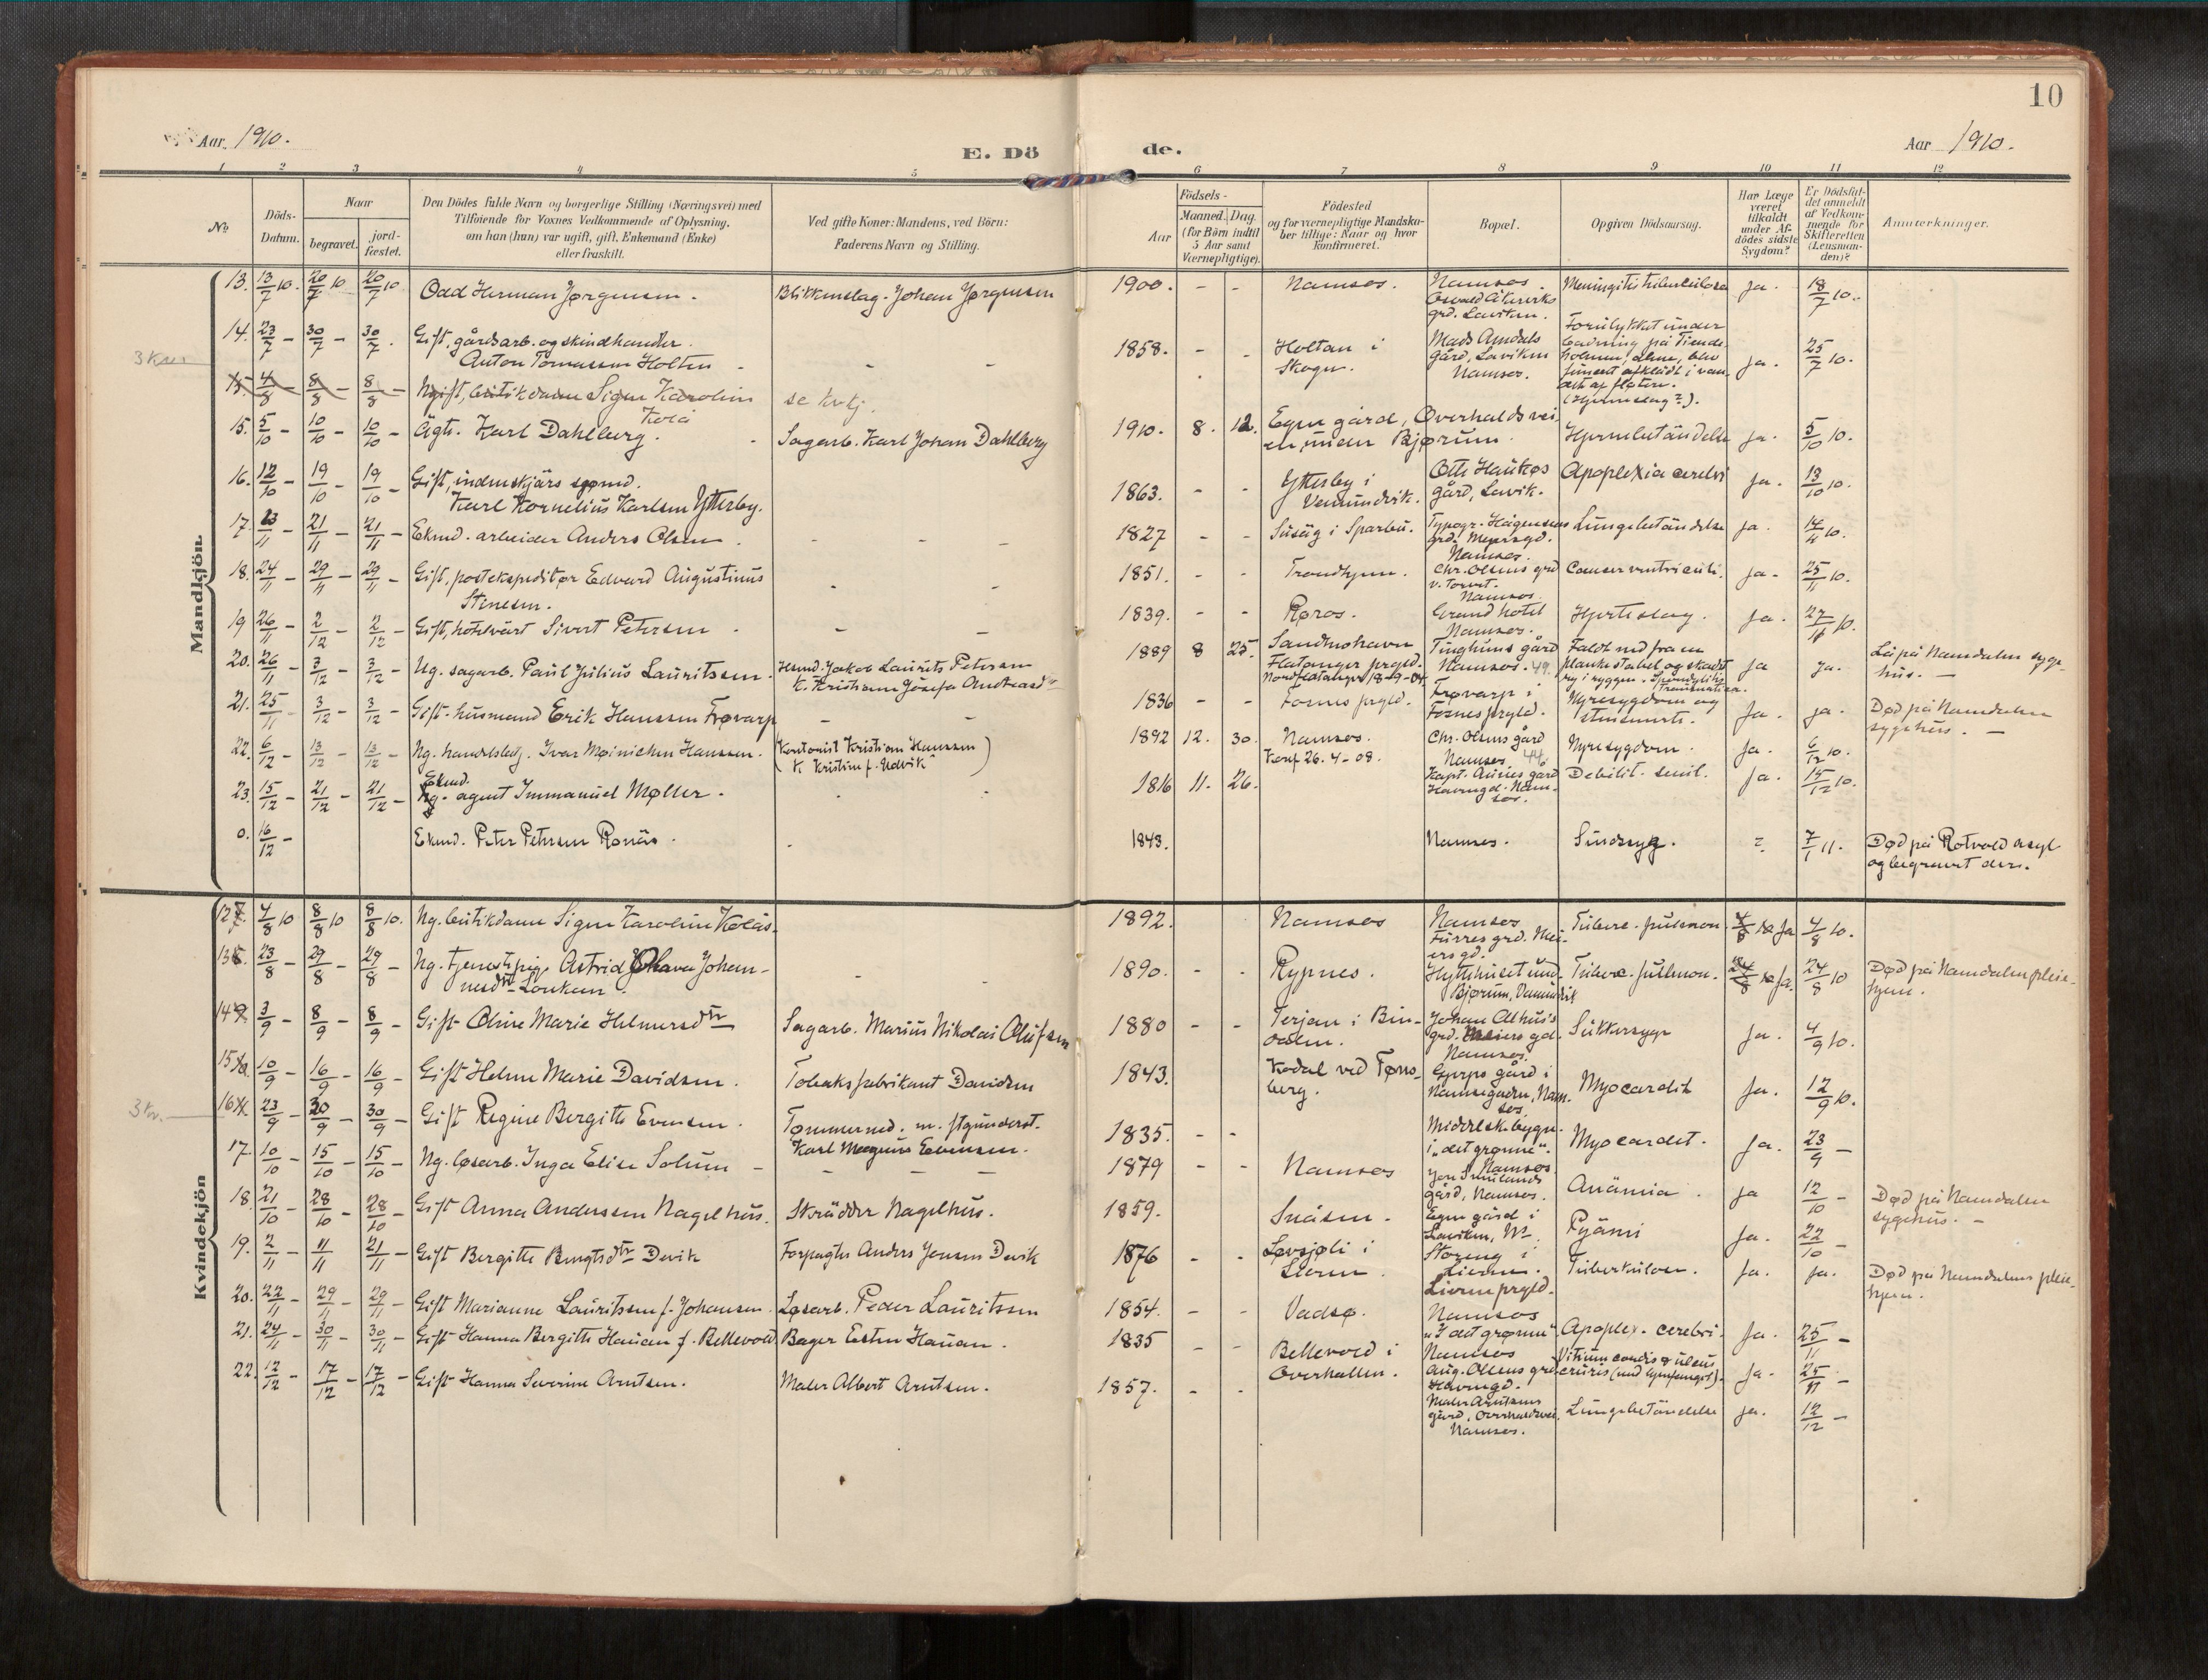 10
Aar 1910.
E. Dö
de.
Aar 1910.
1 2 3 4 5 6 7 8 9 10 11 12
No.
Döds-Datum.
Naar
begravet.
jord-fæstet.
Den Dödes fulde Navn og borgerlige Stilling (Næringsvei) med
Tilföiende for Voxnes Vedkommende af Oplysning,
om han (hun) var ugift, gift, Enkemand (Enke)
eller fraskilt.
Ved gifte Koner: Mandens, ved Börn:
Faderens Navn og Stilling.
Födsels-
Aar
Maaned. Dag.
(for Börn indtil
5 Aar samt
Værnepligtige).
Födested
og for værnepligtige Mandska-
ber tillige: Naar og hvor
konfirmeret.
Bopæl.
Opgiven Dödsaarsag.
Har Læge
været
tilkaldt
under Af-
dödes sidste
Sygdom?
Er Dödsfal-
det anmeldt
af Vedkom-
mende for
Skifteretten
(Lensman-
den)?
Anmærkninger.
Mandkjön.
13. 13/7 10. 20/7 10 20/7 10 Odd Herman Jørgensen. Blikkenslag. Johan Jørgensen 1900. - - Namsos. Namsos. Meningitis tuberculosa ja. 18/7 10.
grd. Laviken.
14. 23/7 - 30/7 - 30/7. Gift, gårdsarb. og skindhandler.
Anton Tomassen Holten - - 1858. - - Holtan i
Skogn.
gård, Laviken
Namsos.
Forulykket under
badning på Tiende-
holmen,
ja. 25/7 10.
15. 4/8 8/8 - 8/8 - Ugift, butikdame Signe Karolin
Kolå
se kvkj.
15. 5/10 - 10/10 - 10/10 - Ægte. Karl Dahlberg. Sagarb. Karl Johan Dahlberg 1910. 8. 12. Egen gård, Overhaldsvei
en, under Bjørum. Hjernebetændelse ja. 5/10 10.
16. 12/10 - 19/10 - 19/10 - Gift, indenskjärs
Karl Kornelius Karlsen Ytterby. 1863. - - Ytterby i
Vemundvik.
gård, Lavik. Apoplexia cerebri ja. 13/10 10.
17. 13/11 - 21/11 - 21/11 - Ekmd. arbeider Anders Olsen. - - 1827 - - Susæg i Sparbu. Typogr. Haigensens
Namsos. Lungebetændelse ja. 14/11 10.
18. 24/11 - 29/11 - 29/11 - Gift, postekspeditør Edvard Augustinus
Stenesen. 1851. - - Trondhjem. Chr. Olsens grd
v. Torvet.
Namsos. Cancer ventriculi. ja. 25/11 10.
19 26/11 - 2/12 - 2/12 - Gift, hotelvært Sivert Petersen. - - 1839. - - Røros. Grand hotel
Namsos. Hjerteslag. ja. 27/11 10.
20. 26/11 - 3/12 - 3/12 - Ug. sagarb. Paul Julius Lauritssen. Husmd. Jakob Laurits Petersen
K. Kristiane Josefa Andreasdtr 1889 8 25. Sandneshavn
Flatanger prgld.
Nordflatanger 18-9-04. Tinghuns gård
Namsos. 49. Faldt ned fra en
plankestabel og skadet
ryg i ryggen. Spondylitis
Traumatica. ja ja. Lå på Namdalen syge-
hus. -
21. 25/11 - 3/12 - 3/12 - Gift. husmand Erik Hanssen Frøvarp - - 1836 - - Fosnes prgld. Frøvarp i
Fosnes prgld. Nyresygdom og
stensmerte. Ja. ja. Død på Namdalen
sygehus. -
22. 6/12 - 13/12 - 13/12 - Ug. handelsbetj. Ivar Meinichen Hanssen. (Kontorist Kristian Hanssen
K. Kristine f. Udvik) 1892 12. 30. Namsos.
Konf 26.4-08. Chr. Olsens gård
Namsos. 44. Nyresygdom. Ja. 6/12 10.
23. 15/12 - 21/12 - 21/12 - Ekmd.
Ug. agent Immanuel Møller. - - 1816 11. 26. Kapt. Aunes gård
Havnegd. Nam-
sos. Debilit. senil. Ja. 15/12 10.
0. 16/12 - Ekmd. Peter Petersen Ronäs. - 1843. Namsos. Sindssyg. ? 7/1 11. Død på Rotvold asyl
og begravet ders.
Kvindekjön
12. 4/8 10 8/8 10 8/8 10. Ug. butikdame Signe Karoline Kolås. 1892. Namsos Namsos
Furres grd. Mei-
ersgd. Tuberc. pulmon. ja 4/8 10.
13. 23/8 - 29/8 - 29/8 - Ug. tjenestepige Astrid Johava Johan-
nesdtr Lonkem. - - 1890. - - Rypnes. Hyttehuset und.
Bjørum, Vemundvik Tuberc. pulmon. ja. 24/8 10 Død på Namdalen pleie-
hjem.
14. 3/9 - 8/9 - 8/9 - Gift Oline Marie Helmersdtr Sagarb. Marius Nikolai Olufsen 1880 - - Terjan i Bin-
dalen. Johan Althus's
grd. Meiers gd.
Namsos. Sukkersyge Ja. 4/9 10.
15. 10/9 - 16/9 - 16/9 - Gift Helene Marie Davidsen. Tobaksfabrikant Davidsen 1843. Kodal ved Tøns-
berg. Gjerps gård i
Namsegaden, Nam-
sos Myocardit Ja. 12/9 10.
3 kr.
16. 23/9 - 30/9 - 30/9 - Gift Regine Bergitte Evensen. Tømmermd. m. fl. understt.
Karl Magnus Evensen. 1835. - - Middelsk. bygn.
i "det grønne".
Namsos Myocardit. Ja. 23/9 -
17. 10/10 - 15/10 - 15/10 - Ug. løsarb. Inga Elise Solum - - - 1879 - - Namsos
gård, Namsos. Anämia. ja 12/10 - Død på Namdalen
sygehus. -
18. 21/10 - 28/10 - 28/10 - Gift Anna Andersen Nagelhus. Skrädder Nagelhus. 1859. Snåsen. Egen gård i
Laviken, Ns. Pyämi Ja. 22/10 -
19. 2/11 - 11/11 21/11 - Gift Bergitte Bengtsdtr Devik Forpagter Anders Jensen Devik 1876 - - Løvsjøli i
Lierne. Storeng i
Lierne.
Lierne prgld. Tuberkulose. Ja. ja. Død på Namdalens pleie-
hjem.
20. 22/11 - 29/11 - 29/11 - Gift Marianne Lauritssen f. Johansen. Løsarb. Peder Lauritssen 1854. - - Vadsø. Namsos
"I det grønne". Apoplex. cerebri. Ja. 25/11 -
21. 24/11 - 30/11 - 30/11 - Gift Hanna Bergitte Hauan f. Bellevold Bager Esten Hauan. 1835 - - Bellevold i
Overhallen. Namsos
Aug. Olsens grd
Havnegd. Vitium cordis & ulcus
cruris (med lymfangit). Ja. 25/11 -
22. 12/12 - 17/12 - 17/12 - Gift Hanna Severine Arntsen. Maler Albert Arntsen. 1857. - - Maler Arntsens
gård, Overhaldsvei.
Namsos. Lungebetændelse ja. 12/12 -